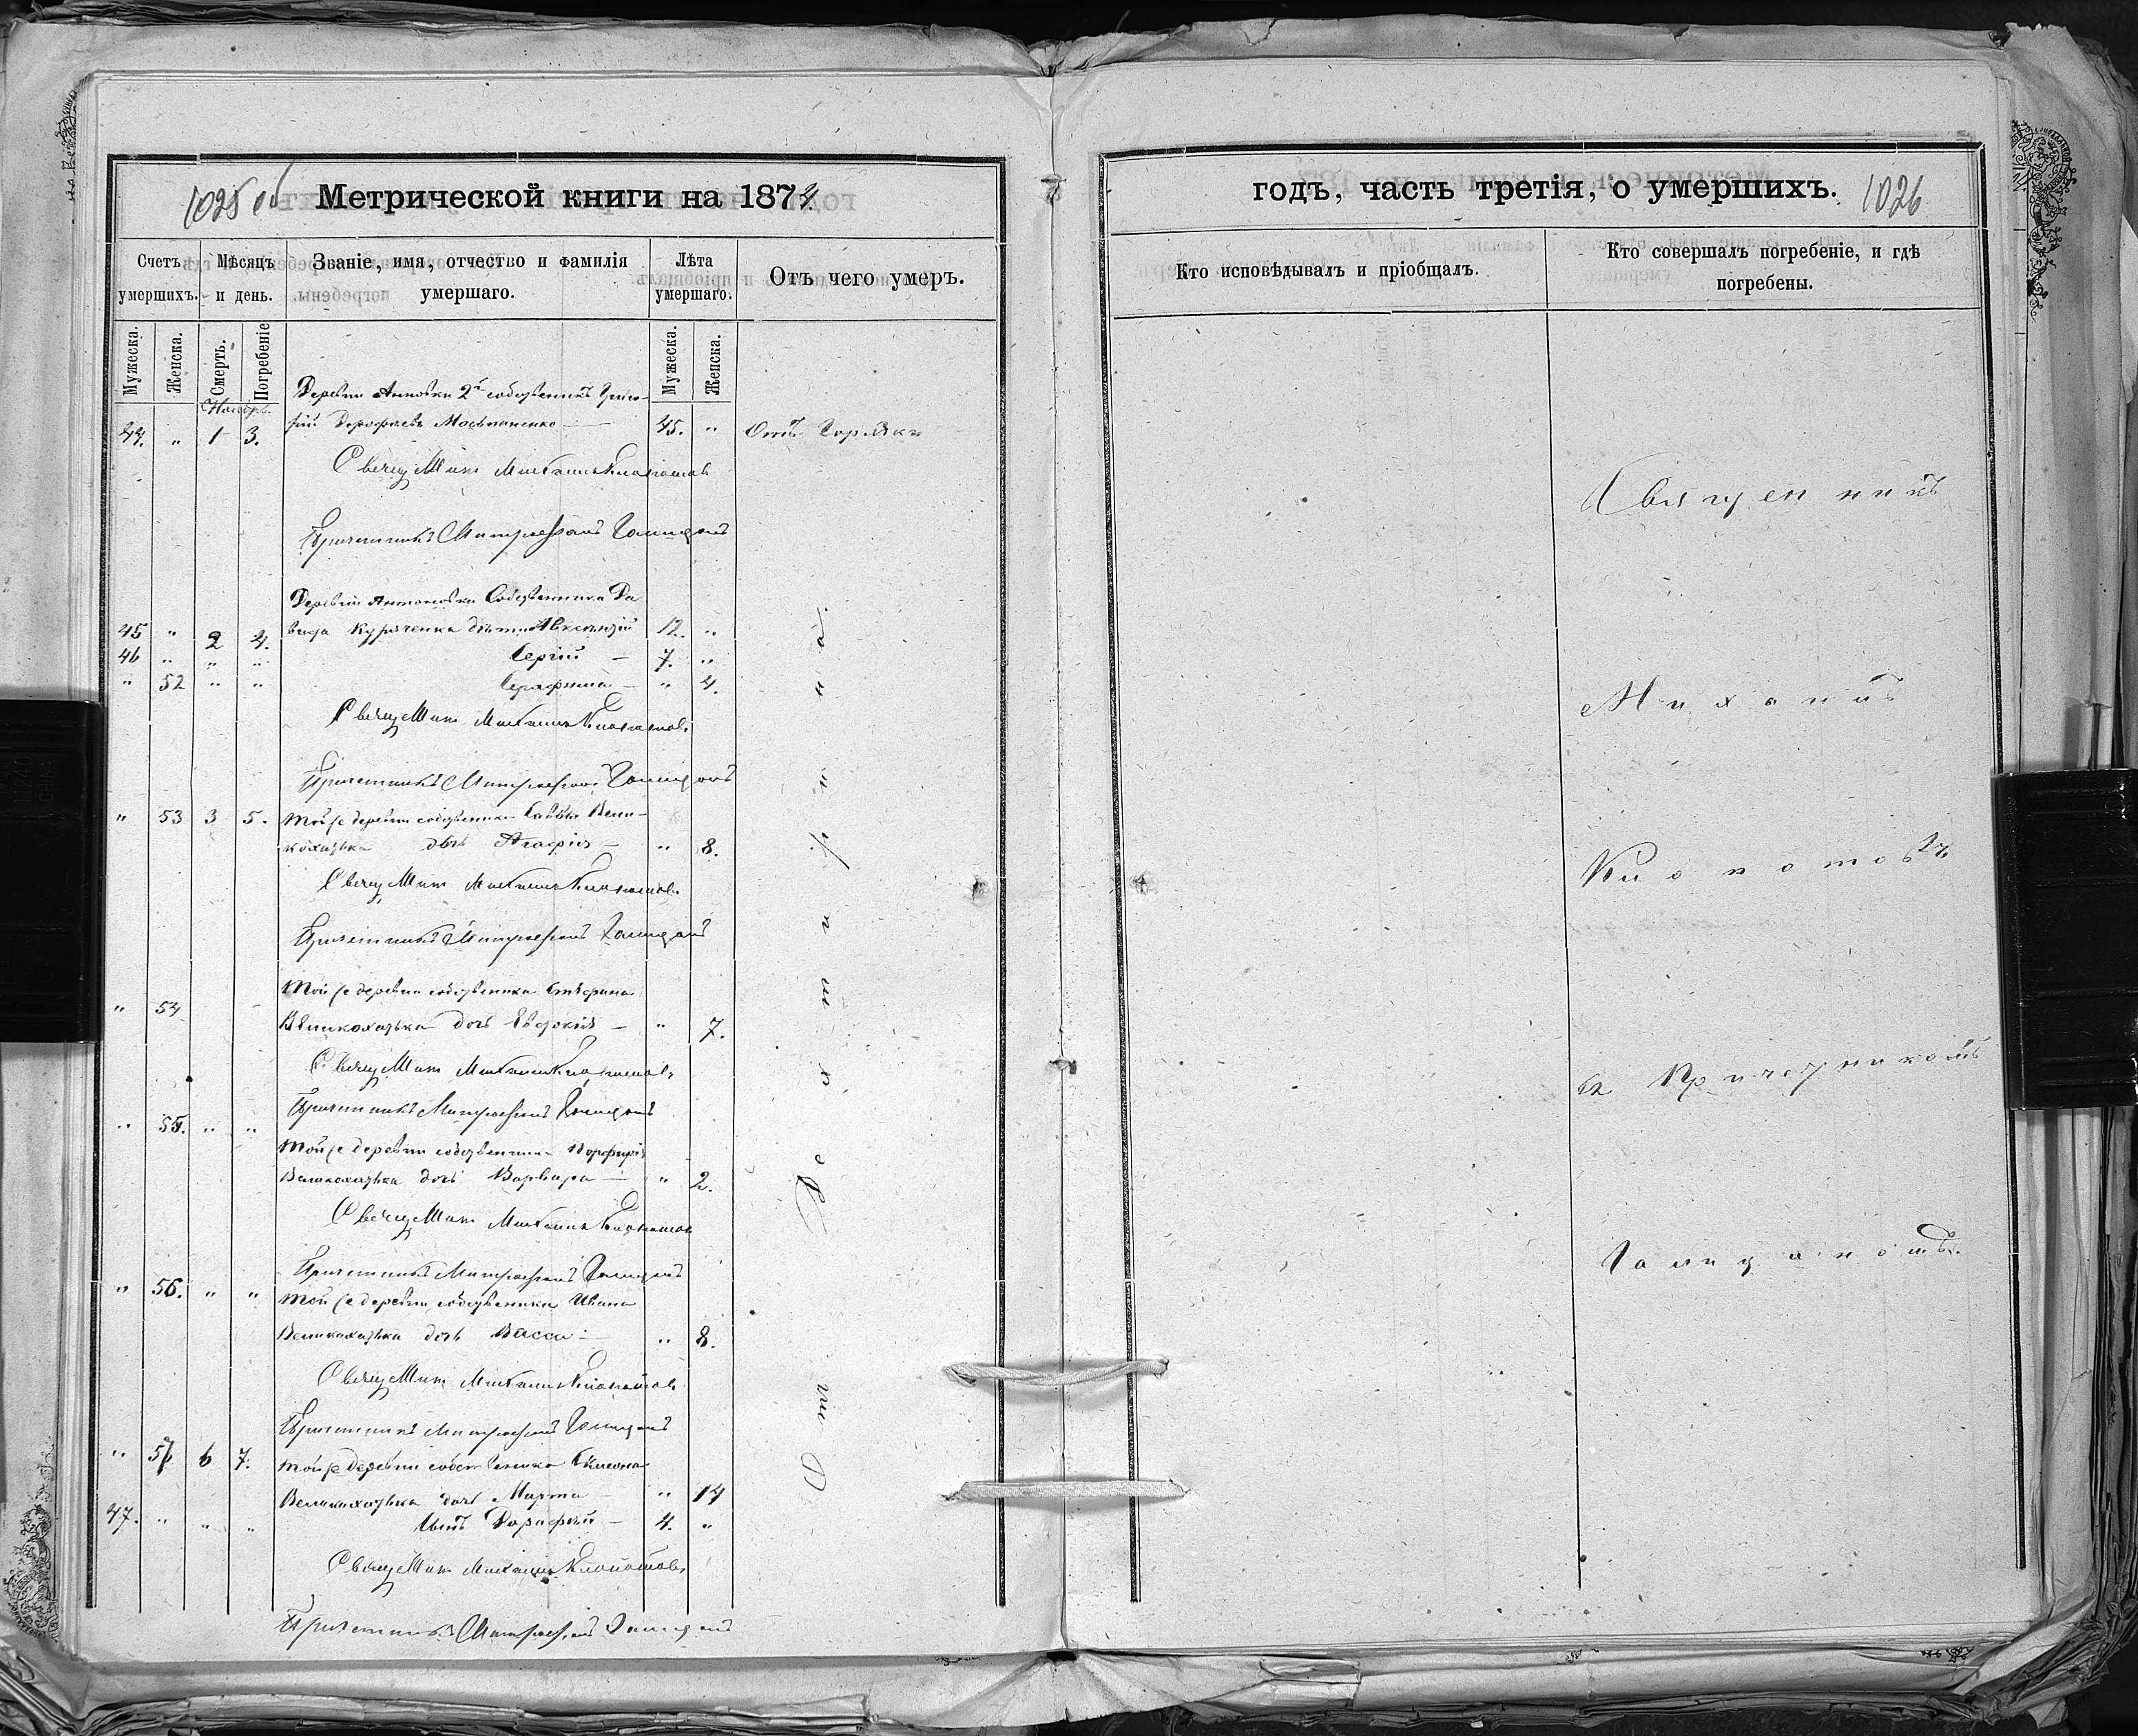 1025 об
Метрической книги на 1874
Счетъ умершихъ.
Мѣсяцъ и день.
Званіе, имя, отчество и фамилія умершаго.
Лѣта умершаго.
Отъ чего умеръ.
Мужеска.
Женска.
Смерть.
Погребеніе
Мужеска.
Женска.
Ноябрь
Деревни 2й собственникъ Григо-
44. " 1 3. рій Дорофеевъ 45. " Отъ Горячки
Священникъ Михаилъ Клопотовъ
Причетникъ Митрофанъ Голицынъ
Деревни Антоновки Собственника Да
45 " 2 4. вида Курченка дѣти Авксентій 12. "
46 " " " Сергій — 7. "
" 52 " " Серафима — " 4.
Священникъ Михаилъ Клопотовъ
Причетникъ Митрофанъ Голицынъ
" 53 3 5. Той же деревни собственника Саввы Вели-
кохатька дочь Агафія — " 8.
Священникъ Михаилъ Клопотовъ
Причетникъ Митрофанъ Голицынъ
Той же деревни собственника Стефана
" 54 Великохатька дочь Евдокія — " 7.
Священникъ Михаилъ Клопотовъ
Причетникъ Митрофанъ Голицынъ
" 55. " "
Той же деревни собственника Порфирія
Великохатька дочь Варвара — " 2.
Священникъ Михаилъ Клопотовъ
Причетникъ Митрофанъ Голицынъ
" 56. " " Той же деревни собственника Ивана
Великохатька дочь Васса — " 8.
Священникъ Михаилъ Клопотовъ
Причетникъ Митрофанъ Голицынъ
" 57 6 7. Той же деревни собственника Симеона
Великохатька дочь Марта — " 14
47. " " " сынъ Дорофей — 4. "
Священникъ Михаилъ Клопотовъ
Причетникъ Митрофанъ Голицынъ
Отъ
годъ, часть третія, о умершихъ.
1026
Кто исповѣдывалъ и пріобщалъ.
Кто совершалъ погребеніе, и гдѣ погребены.
Священникъ
Михаилъ
Клопотовъ
съ Причетникомъ
Голицыномъ.